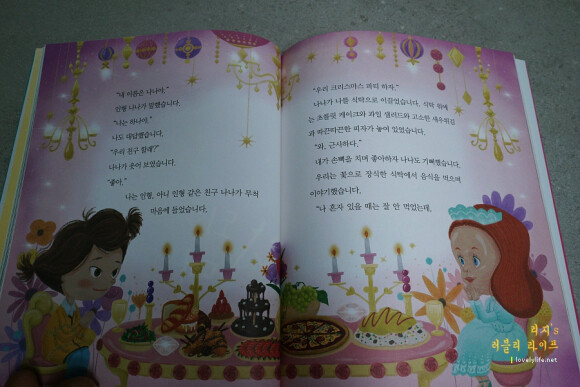 "내 이름은 나나야."
인형 나나가 말했습니다.
"나는 하나야."
나도 대답했습니다.
"우리 친구 할래?"
나나가 웃어 보였습니다.
"좋아."
나는 인형, 아니 인형 같은 친구 나나가 무척
마음에 들었습니다.
"우리 크리스마스 파티 하자."
나나가 나를 식탁으로 이끌었습니다. 식탁 위에
는 초콜릿 케이크와 과일 샐러드와 고소한 새우튀김
과 따끈따끈한 피자가 놓여 있었습니다.
"와, 근사하다."
내가 손뼉을 치며 좋아하자 나나도 기뻐했습니다.
우리는 꽃으로 장식한 식탁에서 음식을 먹으며
이야기했습니다.
"나 혼자 있을 때는 잘 안 먹었는데,
리지's
러블리 라이프
lovelylife.net